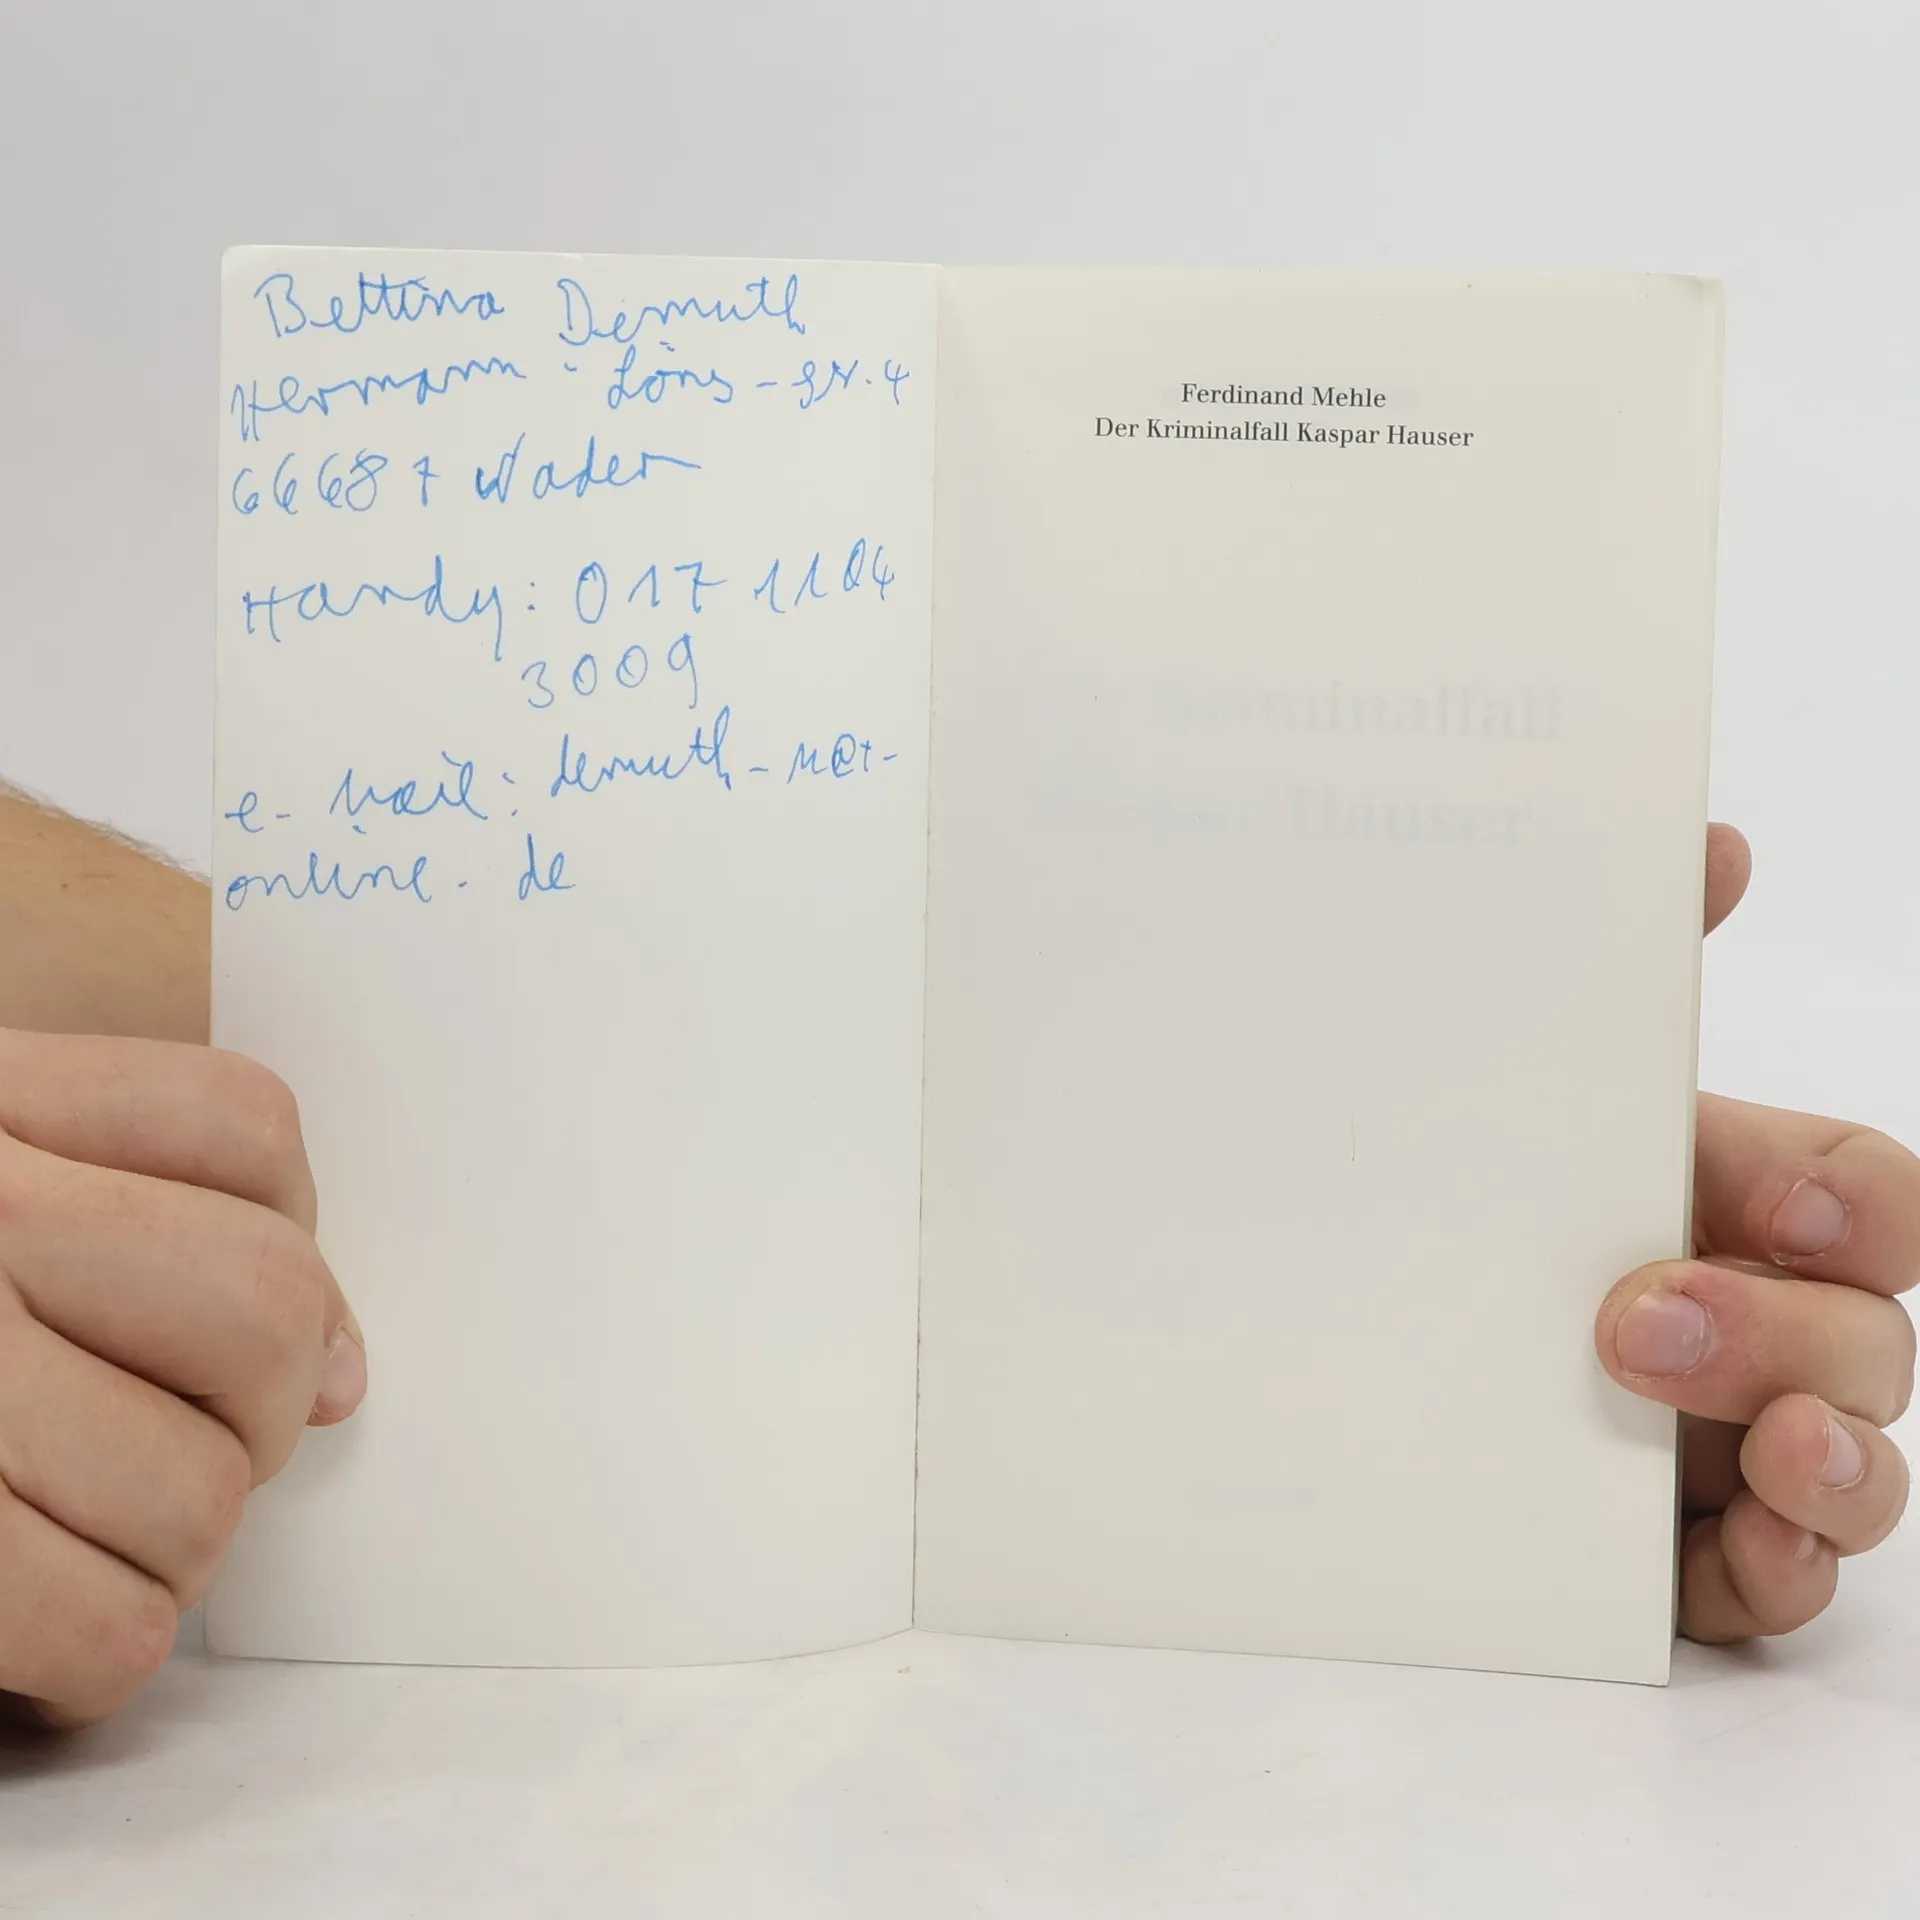 Bettina Demuth
Hermann-Löns-Str. 4
66687 Wadern
Handy: 0171104
3009
e-mail: demuth-n@t-
online.de
Ferdinand Mehle
Der Kriminalfall Kaspar Hauser